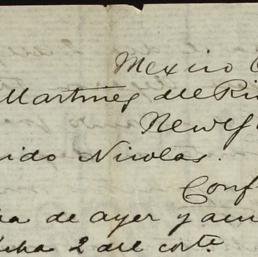 Mexico
Martinez del Ri
New
ido Nicolas.
Conf
ha de ayer y
cha 2 del corte.